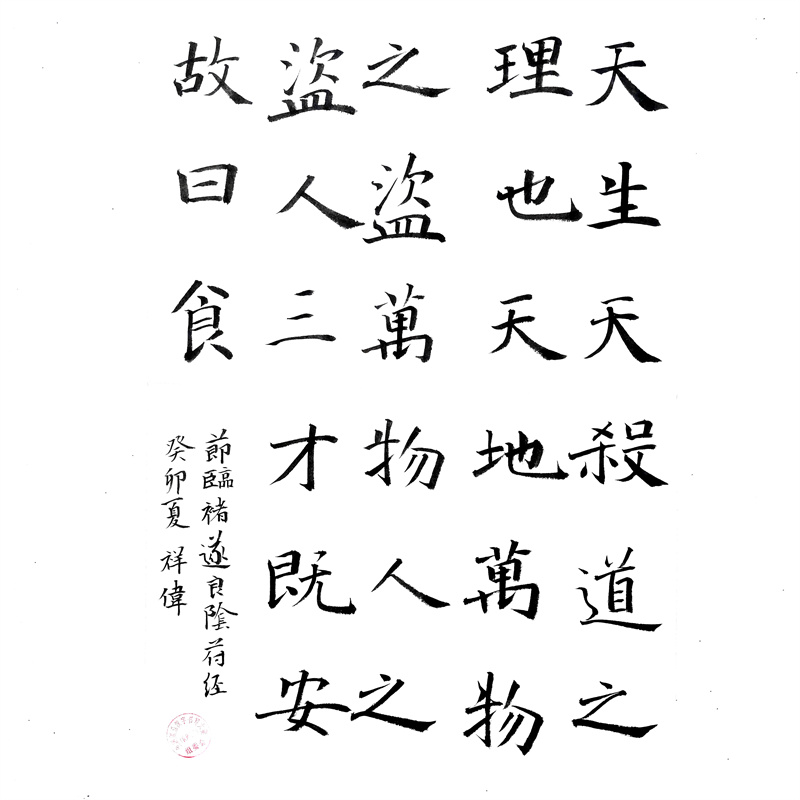 天生天殺道之
理也天地萬物
之盜萬物人之
盜人三才既安
故曰食
節臨褚遂良陰符经
癸卯夏祥偉